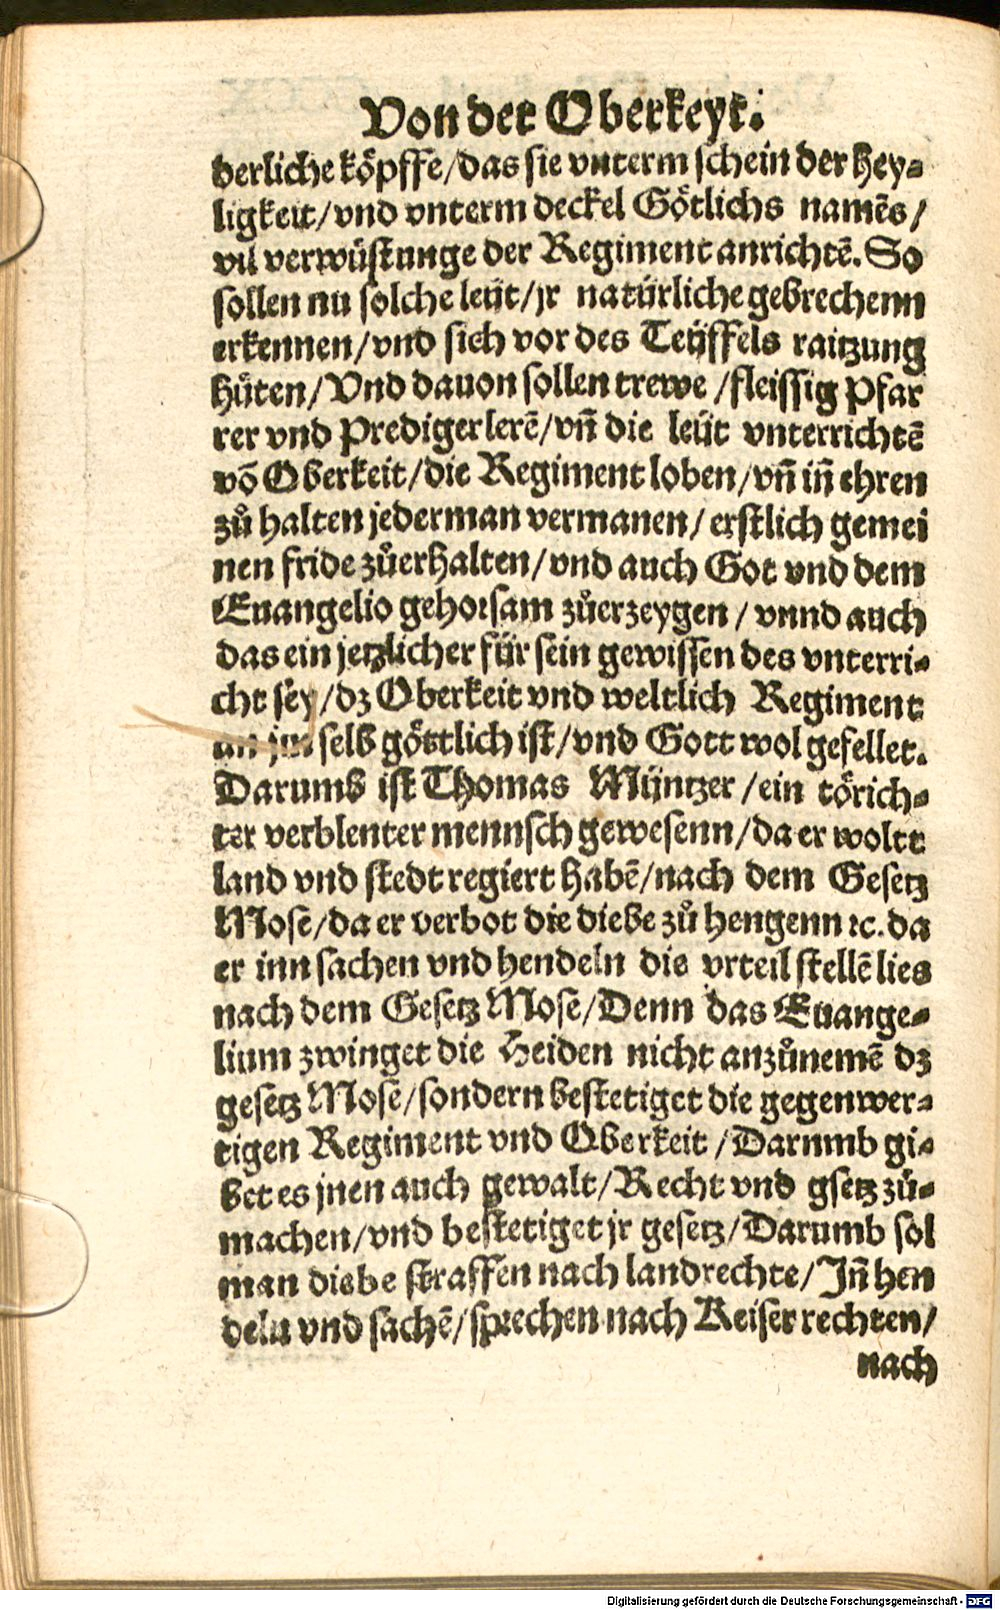 Von der Oberkeyt.
derliche köpffe/das sie vnterm schein der Hey⸗
ligkeit/vnd vnterm deckel Götlichs namēs/
vil verwüstunge der Regiment anrichtē. So
sollen nu solche leüt/jr natürliche gebrechenn
erkennen/vnd sich vor des Teüffels raitzung
hüten/Vnd dauon sollen trewe/fleissig Pfar
rer vnd Prediger lerē/vn̄ die leüt vnterrichtē
vō Oberkeit/die Regiment loben/vn̄ in̄ ehren
zů halten jederman vermanen/erstlich gemei
nen fride zůerhalten/vnd auch Got vnd dem
Euangelio gehorsam zůerzeygen/vnnd auch
das ein jetzlicher für sein gewissen des vnterri⸗
cht sey/dz Oberkeit vnd weltlich Regiment
an jm selb göttlich ist/vnd Gott wol gefellet.
Darumb ist Thomas Müntzer/ein törich⸗
ter verblenter mennsch gewesenn/da er wolt
land vnd stedt regiert habē/nach dem Gesetz
Mose/da er verbot die diebe zů hengenn ꝛc. da
er inn sachen vnd hendeln die vrteil stellē lies
nach dem Gesetz Mose/Denn das Euange⸗
lium zwinget die Heiden nicht anzůnemē dz
gesetz Mose/sondern bestetiget die gegenwer⸗
tigen Regiment vnd Oberkeit/Darumb gi⸗
bet es jnen auch gewalt/Recht vnd gsetz zů⸗
machen/vnd bestetiget jr gesetz/Darumb sol
man diebe straffen nach landrechte/In̄ hen
deln vnd sachē/sprechen nach Keiser rechten/
nach
Digitalisierung gefördert durch die Deutsche Forschungsgemeinschaft - DFG